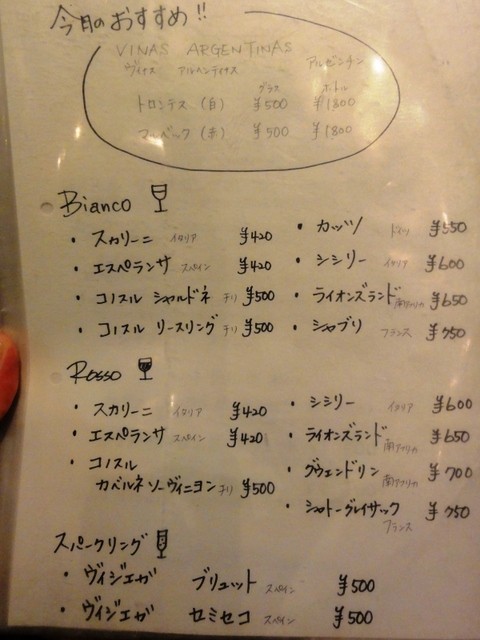 今月のおすすめ!!
VINAS ARGENTINAS
ヴィナス アルヘンティナス アルゼンチン
グラス ボトル
トロンテス (白) ¥500 ¥1800
マルベック (赤) ¥500 ¥1800
Bianco
・スカリーニ イタリア ¥420
・エスペランサ スペイン ¥420
・コノスル シャルドネ チリ ¥500
・コノスル リースリング チリ ¥500
・カッツ ドイツ ¥550
・シシリー イタリア ¥600
・ライオンズランド 南アフリカ ¥650
・シャブリ フランス ¥750
Rosso
・スカリーニ イタリア ¥420
・エスペランサ スペイン ¥420
・コノスル
カベルネソーヴィニヨン チリ ¥500
・シシリー イタリア ¥600
・ライオンズランド 南アフリカ ¥650
・グウェンドリン 南アフリカ ¥700
・シャトーグレイサック ¥750
フランス
スパークリング
・ヴィジエガ ブリュット スペイン ¥500
・ヴィジエガ セミセコ スペイン ¥500